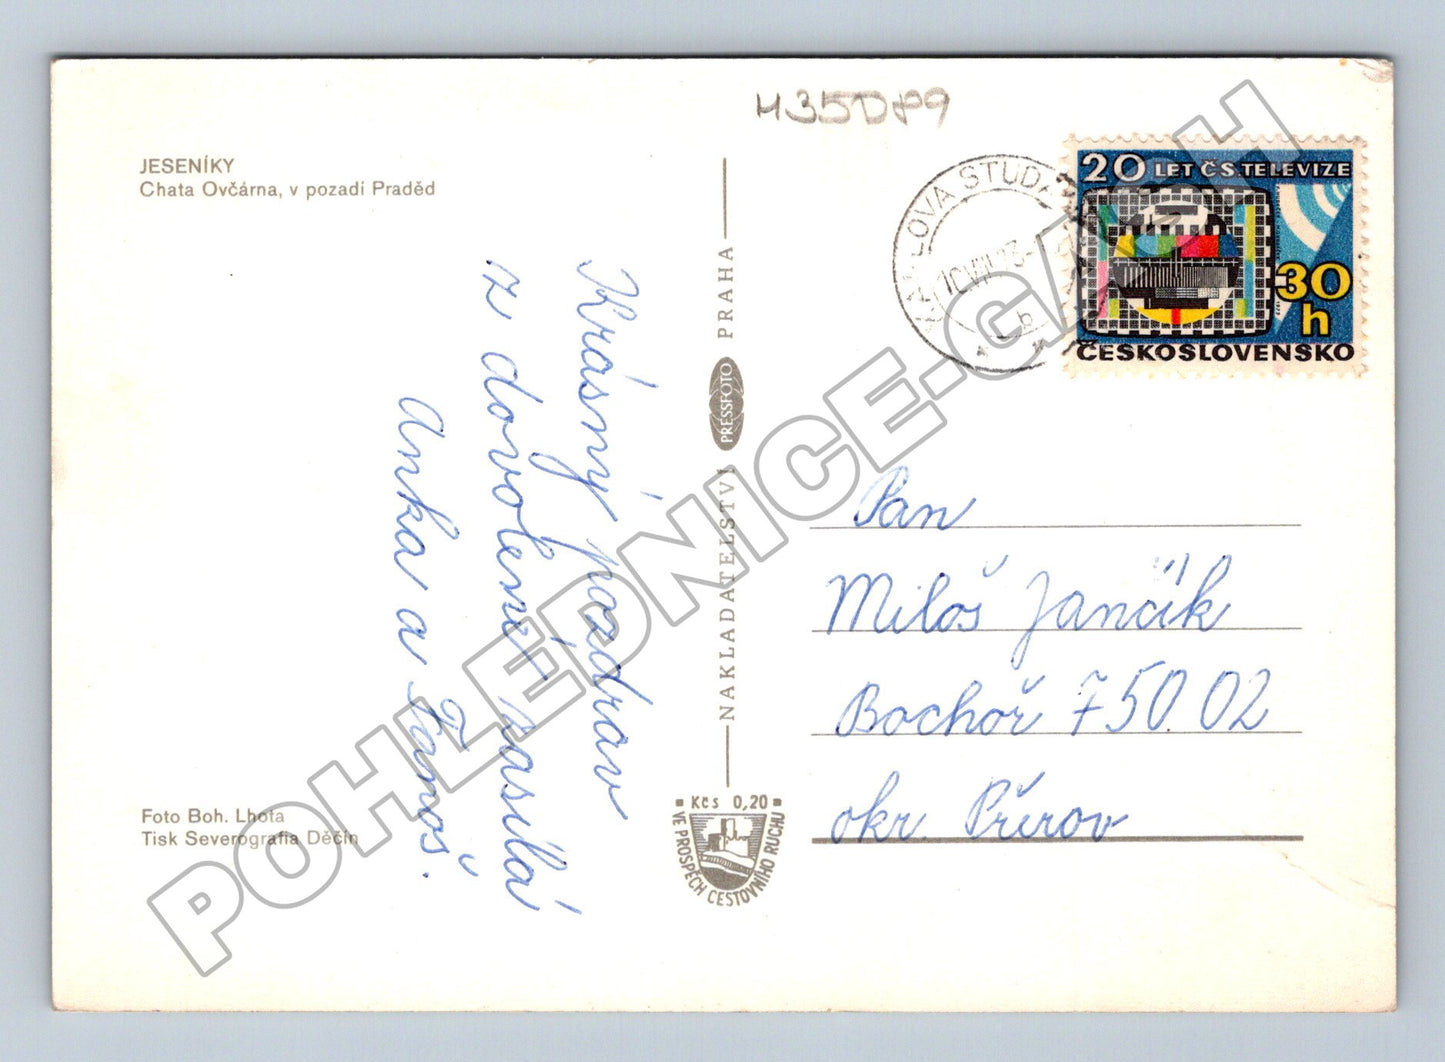 H35DP9
JESENÍKY
Chata Ovčárna, v pozadí Praděd
KARLOVA STUDÁ
10.VIII.73
b
20 LET ČS. TELEVIZE
30
h
ČESKOSLOVENSKO
Krásný pozdrav
z dovolené zasílá
Anka a Fanoš.
NAKLADATELSTVÍ PRESSFOTO PRAHA
Pan
Miloš Jančík
Bochoř 750 02
okr Přerov
Foto Boh. Lhota
Tisk Severografia Děčín
Kčs 0,20
VE PROSPĚCH CESTOVNÍHO RUCHU
POHLEDNICE-GARCH